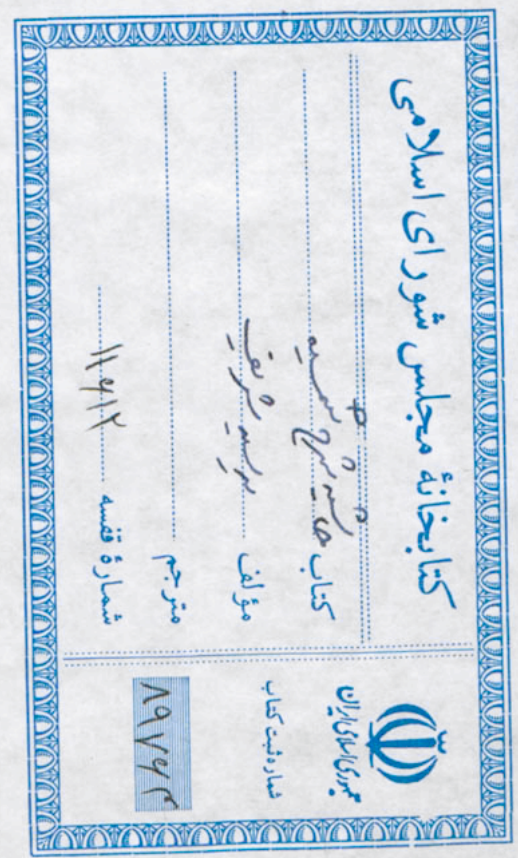 کتابخانهٔ مجلس شورای اسلامی
کتاب حاشیه شرح شمسیه
مؤلف میر سید شریف
مترجم
شمارهٔ قفسه ۱۱۶۱۲
جمهوری اسلامی ایران
شماره ثبت کتاب
۸۹۷۶۴